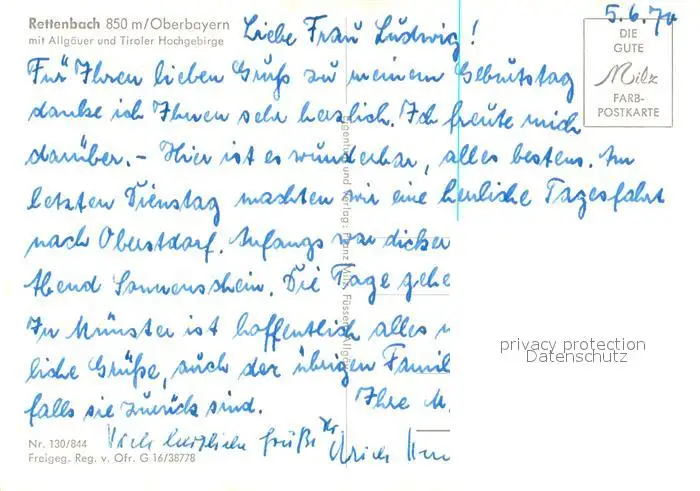 Rettenbach 850 m/Oberbayern
mit Allgäuer und Tiroler Hochgebirge
5.6.70
Liebe Frau Ludwig!
DIE
GUTE
Milz
FARB-
POSTKARTE
Für Ihren lieben Gruß zu meinem Geburtstag
danke ich Ihnen sehr herzlich. Ich freute mich
darüber. – Hier ist es wunderbar, alles bestens. Am
letzten Dienstag machten wir eine herrliche Tagesfahrt
nach Oberstdorf. Anfangs war dicker
Abend Sonnenschein. Die Tage gehe
In Münster ist hoffentlich alles
liche Grüße, auch der übrigen Famil
falls sie zurück sind. Ihre M.
Viele herzliche Grüße
Nr. 130/844
Freigeg. Reg. v. Ofr. G 16/38778
Verlag: Franz Milz, Füssen Allgäu
privacy protection
Datenschutz